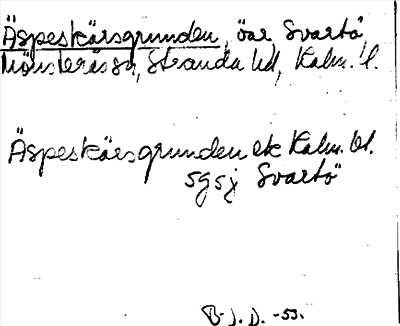 Äspeskärsgrunden, öar Svartö,
Mönsterås sn, Stranda hd, Kalm. l.
Äspeskärsgrunden ek Kalm. bl.
5g5j Svartö
B. J. D. -53.